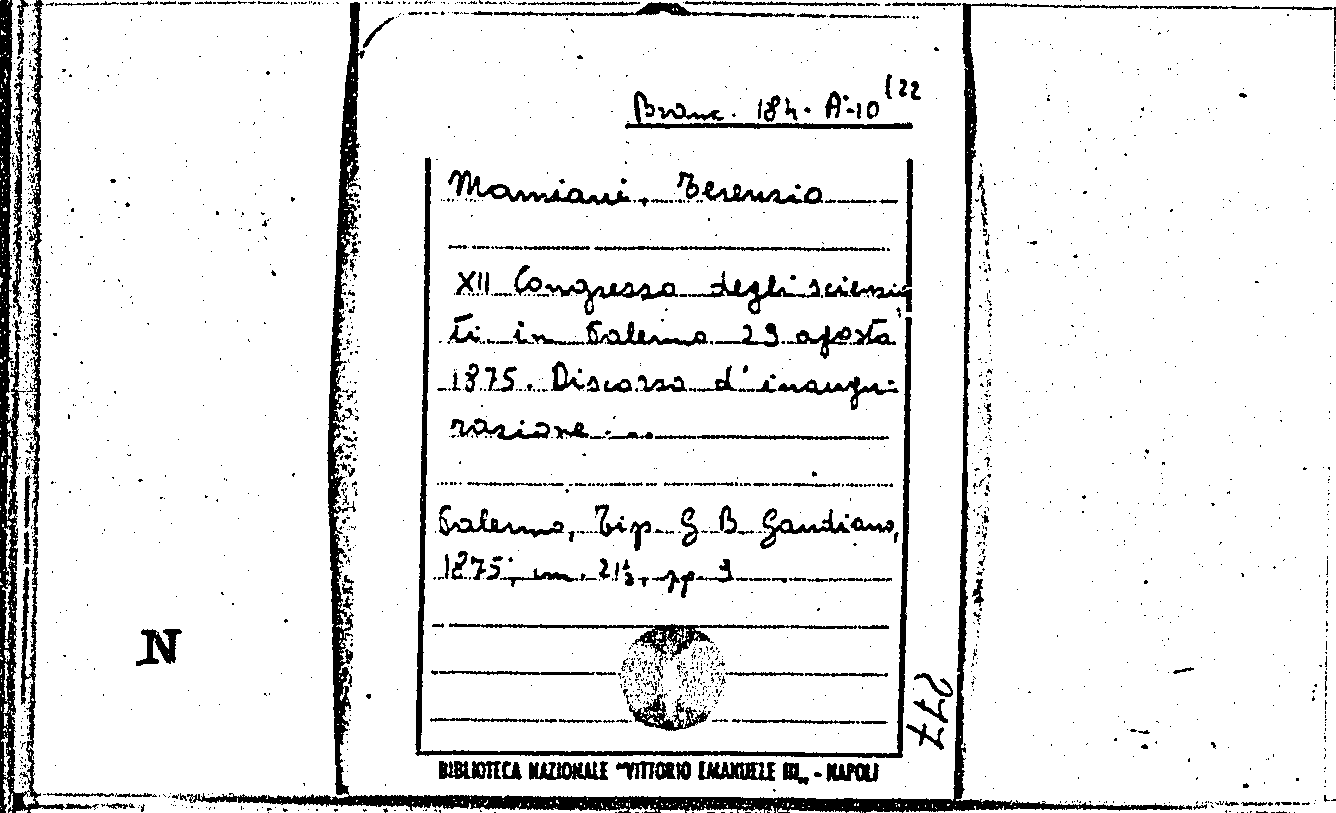 Branc. 184. A-10 (22
Mamiani, Terenzio
XII Congresso degli scienzia
ti in Palermo 29 agosto
1875. Discorso d'inaugu-
razione ...
Palermo, Tip. G B Gaudiano,
1875, in. 21½, pp 9
277
N
BIBLIOTECA NAZIONALE "VITTORIO EMANUELE III„ - NAPOLI